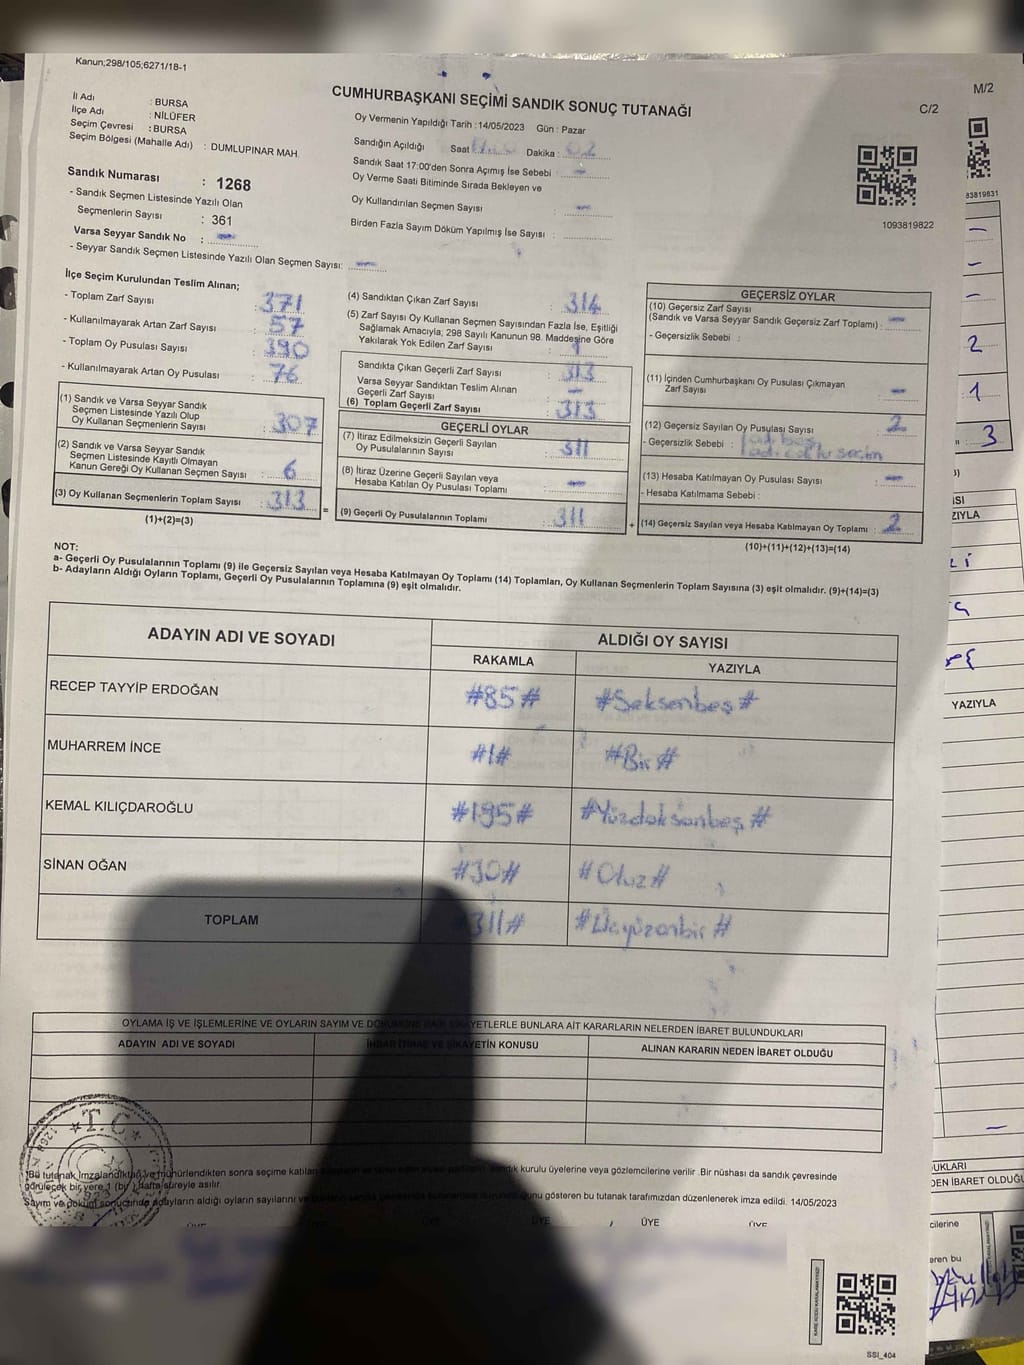 Kanun;298/105;6271/18-1
M/2
C/2
CUMHURBAŞKANI SEÇİMİ SANDIK SONUÇ TUTANAĞI
İl Adı : BURSA
İlçe Adı : NİLÜFER
Seçim Çevresi : BURSA
Seçim Bölgesi (Mahalle Adı) : DUMLUPINAR MAH.
Oy Vermenin Yapıldığı Tarih : 14/05/2023 Gün : Pazar
Sandığın Açıldığı Saat Dakika :
Sandık Saat 17:00'den Sonra Açımış İse Sebebi : -
Oy Verme Saati Bitiminde Sırada Bekleyen ve
Oy Kullandırılan Seçmen Sayısı : -
Birden Fazla Sayım Döküm Yapılmış İse Sayısı :
1093819822
83819831
Sandık Numarası : 1268
- Sandık Seçmen Listesinde Yazılı Olan
Seçmenlerin Sayısı : 361
Varsa Seyyar Sandık No : -
- Seyyar Sandık Seçmen Listesinde Yazılı Olan Seçmen Sayısı: -
İlçe Seçim Kurulundan Teslim Alınan;
- Toplam Zarf Sayısı : 371
- Kullanılmayarak Artan Zarf Sayısı : 57
- Toplam Oy Pusulası Sayısı : 390
- Kullanılmayarak Artan Oy Pusulası : 76
(1) Sandık ve Varsa Seyyar Sandık
Seçmen Listesinde Yazılı Olup
Oy Kullanan Seçmenlerin Sayısı : 307
(2) Sandık ve Varsa Seyyar Sandık
Seçmen Listesinde Kayıtlı Olmayan
Kanun Gereği Oy Kullanan Seçmen Sayısı : 6
(3) Oy Kullanan Seçmenlerin Toplam Sayısı : 313
(1)+(2)=(3)
(4) Sandıktan Çıkan Zarf Sayısı : 314
(5) Zarf Sayısı Oy Kullanan Seçmen Sayısından Fazla İse, Eşitliği
Sağlamak Amacıyla; 298 Sayılı Kanunun 98. Maddesine Göre
Yakılarak Yok Edilen Zarf Sayısı : 1
Sandıkta Çıkan Geçerli Zarf Sayısı : 313
Varsa Seyyar Sandıktan Teslim Alınan
Geçerli Zarf Sayısı : -
(6) Toplam Geçerli Zarf Sayısı : 313
GEÇERLİ OYLAR
(7) İtiraz Edilmeksizin Geçerli Sayılan
Oy Pusulalarının Sayısı : 311
(8) İtiraz Üzerine Geçerli Sayılan veya
Hesaba Katılan Oy Pusulası Toplamı : -
(9) Geçerli Oy Pusulalarının Toplamı : 311
GEÇERSİZ OYLAR
(10) Geçersiz Zarf Sayısı
(Sandık ve Varsa Seyyar Sandık Geçersiz Zarf Toplamı) : -
- Geçersizlik Sebebi :
(11) İçinden Cumhurbaşkanı Oy Pusulası Çıkmayan
Zarf Sayısı : -
(12) Geçersiz Sayılan Oy Pusulası Sayısı : 2
- Geçersizlik Sebebi :
(13) Hesaba Katılmayan Oy Pusulası Sayısı : -
- Hesaba Katılmama Sebebi :
(14) Geçersiz Sayılan veya Hesaba Katılmayan Oy Toplamı : 2
(10)+(11)+(12)+(13)=(14)
NOT:
a- Geçerli Oy Pusulalarının Toplamı (9) ile Geçersiz Sayılan veya Hesaba Katılmayan Oy Toplamı (14) Toplamları, Oy Kullanan Seçmenlerin Toplam Sayısına (3) eşit olmalıdır. (9)+(14)=(3)
b- Adayların Aldığı Oyların Toplamı, Geçerli Oy Pusulalarının Toplamına (9) eşit olmalıdır.
ADAYIN ADI VE SOYADI ALDIĞI OY SAYISI
RAKAMLA YAZIYLA
RECEP TAYYİP ERDOĞAN #85# #Seksenbeş#
MUHARREM İNCE #1# #Bir#
KEMAL KILIÇDAROĞLU #195# #Yüzdoksanbeş#
SİNAN OĞAN #30# #Otuz#
TOPLAM 311# #Üçyüzonbir#
OYLAMA İŞ VE İŞLEMLERİNE VE OYLARIN SAYIM VE DÖKÜMÜNE DAİR ŞİKAYETLERLE BUNLARA AİT KARARLARIN NELERDEN İBARET BULUNDUKLARI
ADAYIN ADI VE SOYADI İHBAR İTİRAZ VE ŞİKAYETİN KONUSU ALINAN KARARIN NEDEN İBARET OLDUĞU
T.C.
Bu tutanak imzalandıktan ve mühürlendikten sonra seçime katılan sandık kurulu üyelerine veya gözlemcilerine verilir. Bir nüshası da sandık çevresinde
görülecek bir yere 1 (bir) hafta süreyle asılır.
Sayım ve döküm sonucunda adayların aldığı oyların sayılarını gösteren bu tutanak tarafımızdan düzenlenerek imza edildi. 14/05/2023
ÜYE ÜYE ÜYE ÜYE ÜYE
SSI_404
2
1
3
YAZIYLA
UKLARI
DEN İBARET OLDUĞU
cilerine
eren bu